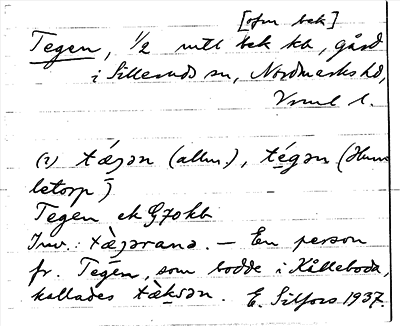 [ofm bek]
Tegen, 1/2 mtl bek kb, gård
i Silleruds sn, Nordmarks hd,
Vrml l.
(2) tǽjən (allm.), tégən (Hum
letorp)
Tegen ek G70kb
Inv.: tæ̀jərana. – En person
fr. Tegen, som bodde i Kålleboda,
kallades tæ̀ksən. E. Silfors 1937.